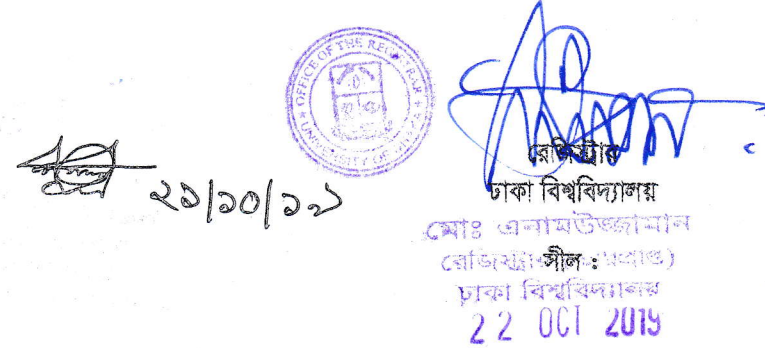 OFFICE OF THE REGISTRAR
UNIVERSITY OF DHAKA
২১/১০/১৯
রেজিস্ট্রার
ঢাকা বিশ্ববিদ্যালয়
মোঃ এনামউজ্জামান
রেজিস্ট্রার
সীল :
ঢাকা বিশ্ববিদ্যালয়
22 OCT 2019